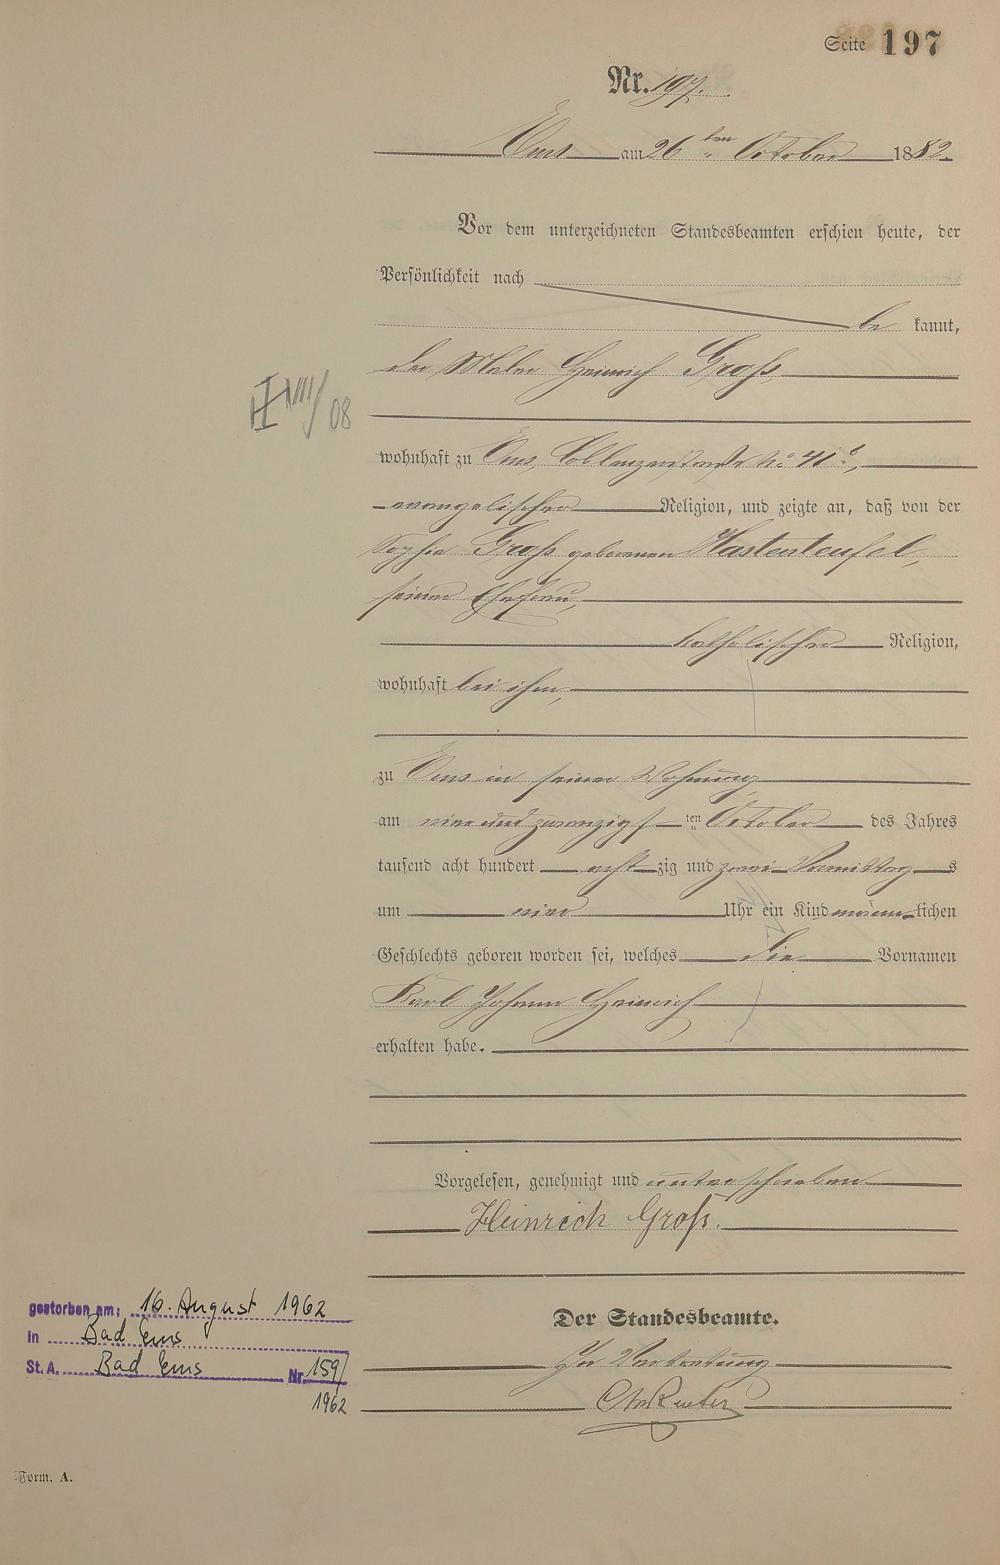 Seite 197
Nr. 197.
Ems am 26ten October 1882.
Vor dem unterzeichneten Standesbeamten erschien heute, der
Persönlichkeit nach
be kannt,
der Maler Heinrich Groß,
08
wohnhaft zu Ems, Coblenzerstraße No 41
evangelischer Religion, und zeigte an, daß von der
Sophie Groß geborenen Hastenteufel,
seiner Ehefrau,
katholischer Religion,
wohnhaft bei ihm,
zu Ems in seiner Wohnung
am vier und zwanzigsten October des Jahres
tausend acht hundert acht zig und zwei Vormittags
um vier Uhr ein Kind männlichen
Geschlechts geboren worden sei, welches die Vornamen
Karl Johann Heinrich
erhalten habe.
Vorgelesen, genehmigt und unterschrieben
Heinrich Groß.
Der Standesbeamte.
In Vertretung
gestorben am: 16. August 1962
in Bad Ems
St. A. Bad Ems Nr. 159/
1962
Form. A.